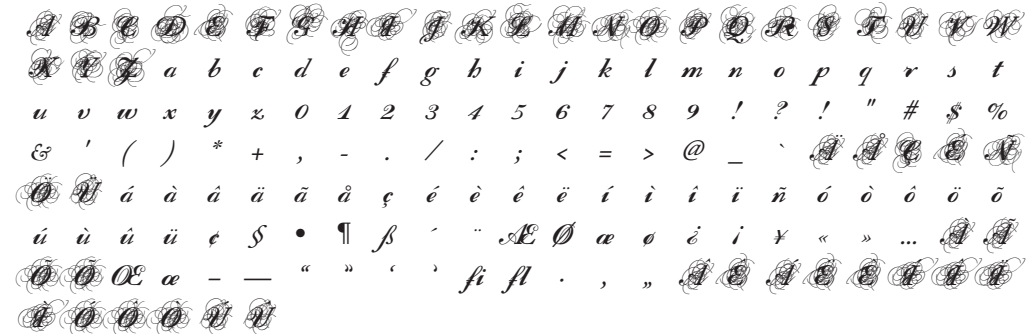 A B C D E F G H I J K L M N O P Q R S T U V W
X Y Z a b c d e f g h i j k l m n o p q r s t
u v w x y z 0 1 2 3 4 5 6 7 8 9 ! ? ! " # $ %
& ' ( ) * + , - . / : ; < = > @ _ ` Ä Å Ç É Ñ
Ö Ü á à â ä ã å ç é è ê ë í ì î ï ñ ó ò ô ö õ
ú ù û ü ¢ § • ¶ ß ´ ¨ Æ Ø æ ø ¿ ¡ ¥ « » … À Ã
Õ Õ Œ œ – — “ ” ‘ ’ fi fl · ‚ „ Â Ê Á Ë È Í Î Ï
Ì Ó Ô Ò Ú Û